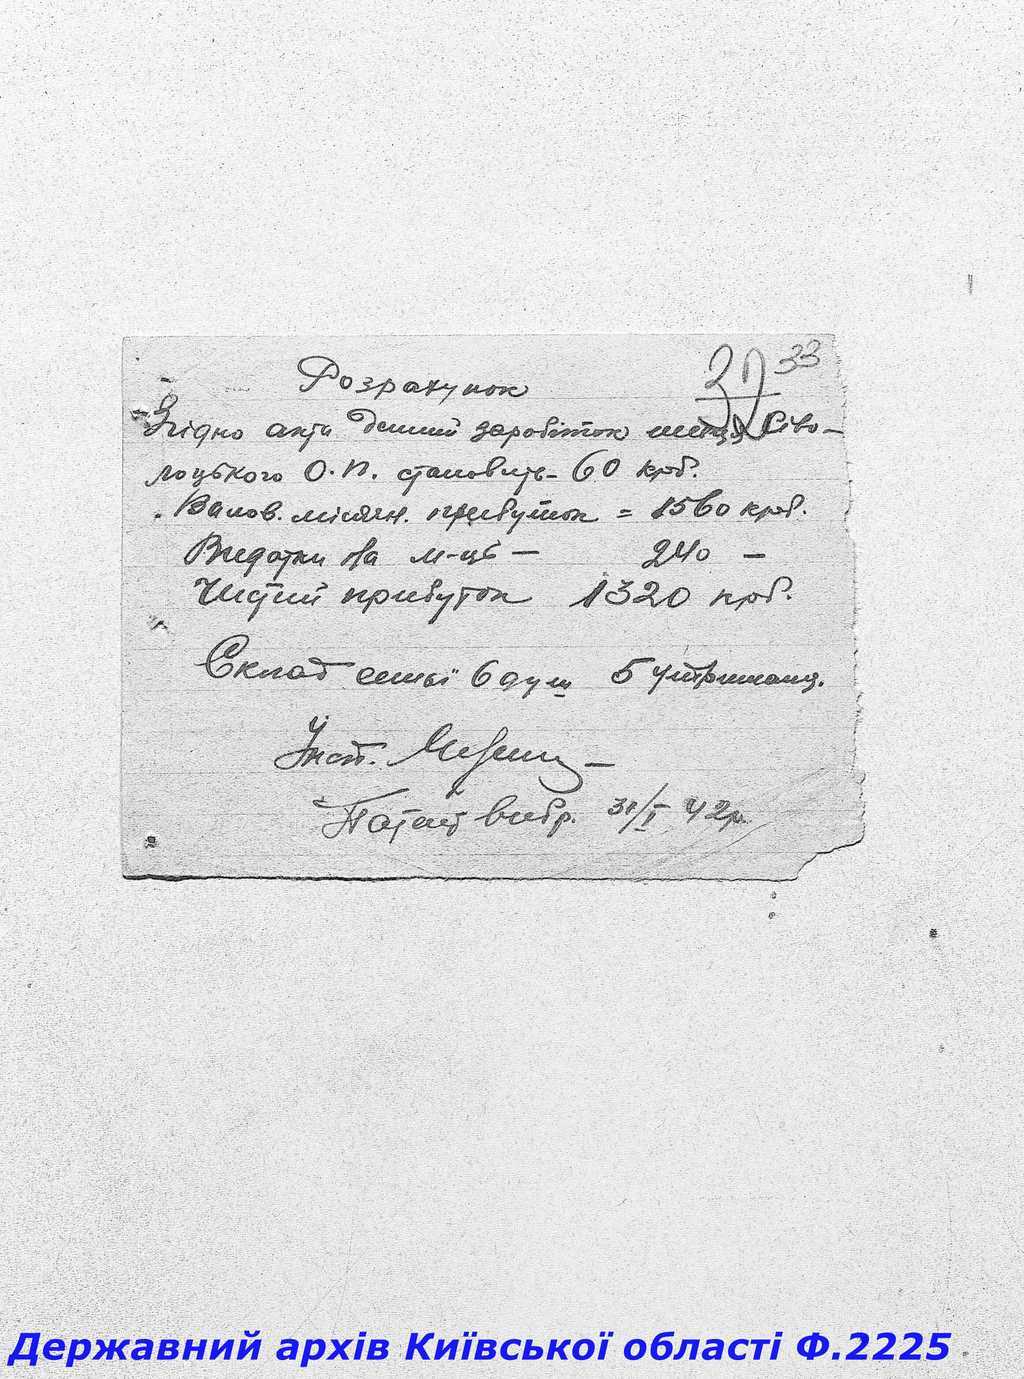 32 33
Розрахунок
Згідно акти денний заробіток шевця Сіво-
лоцького О.П. становить- 60 крб.
Валов. місячн. прибуток = 1560 крб.
Видатки на м-ць - 240 -
Чистий прибуток 1320 крб.
Склад семьї 6 душ 5 утриманц.
Інсп.
Патент вибр. 31/I 42р.
Державний архів Київської області Ф.2225